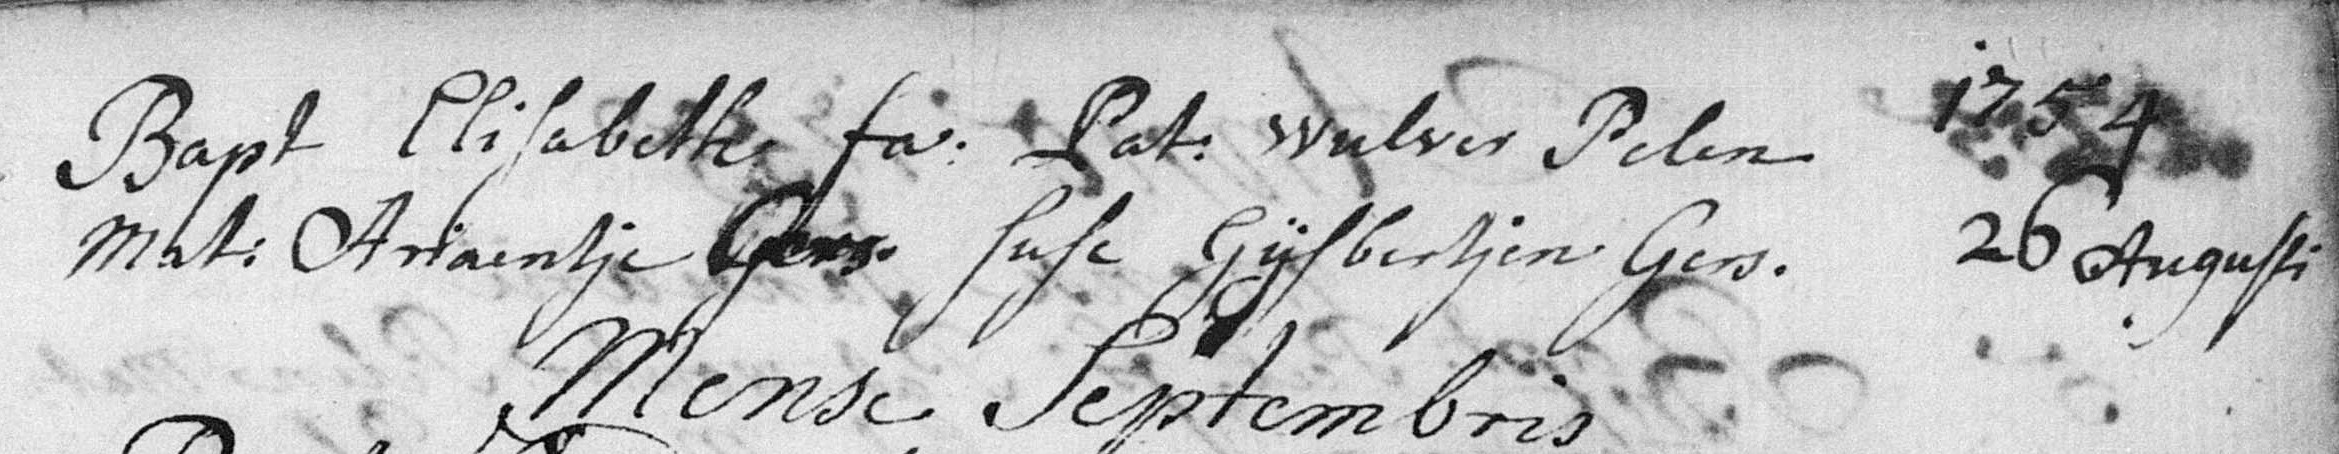 Bapt Elisabetha fa: Pat: Wulver Pelen 1754
Mat: Ariaentje Gers. suse Gijsbertjen Gers. 26 Augusti
Mense Septembris